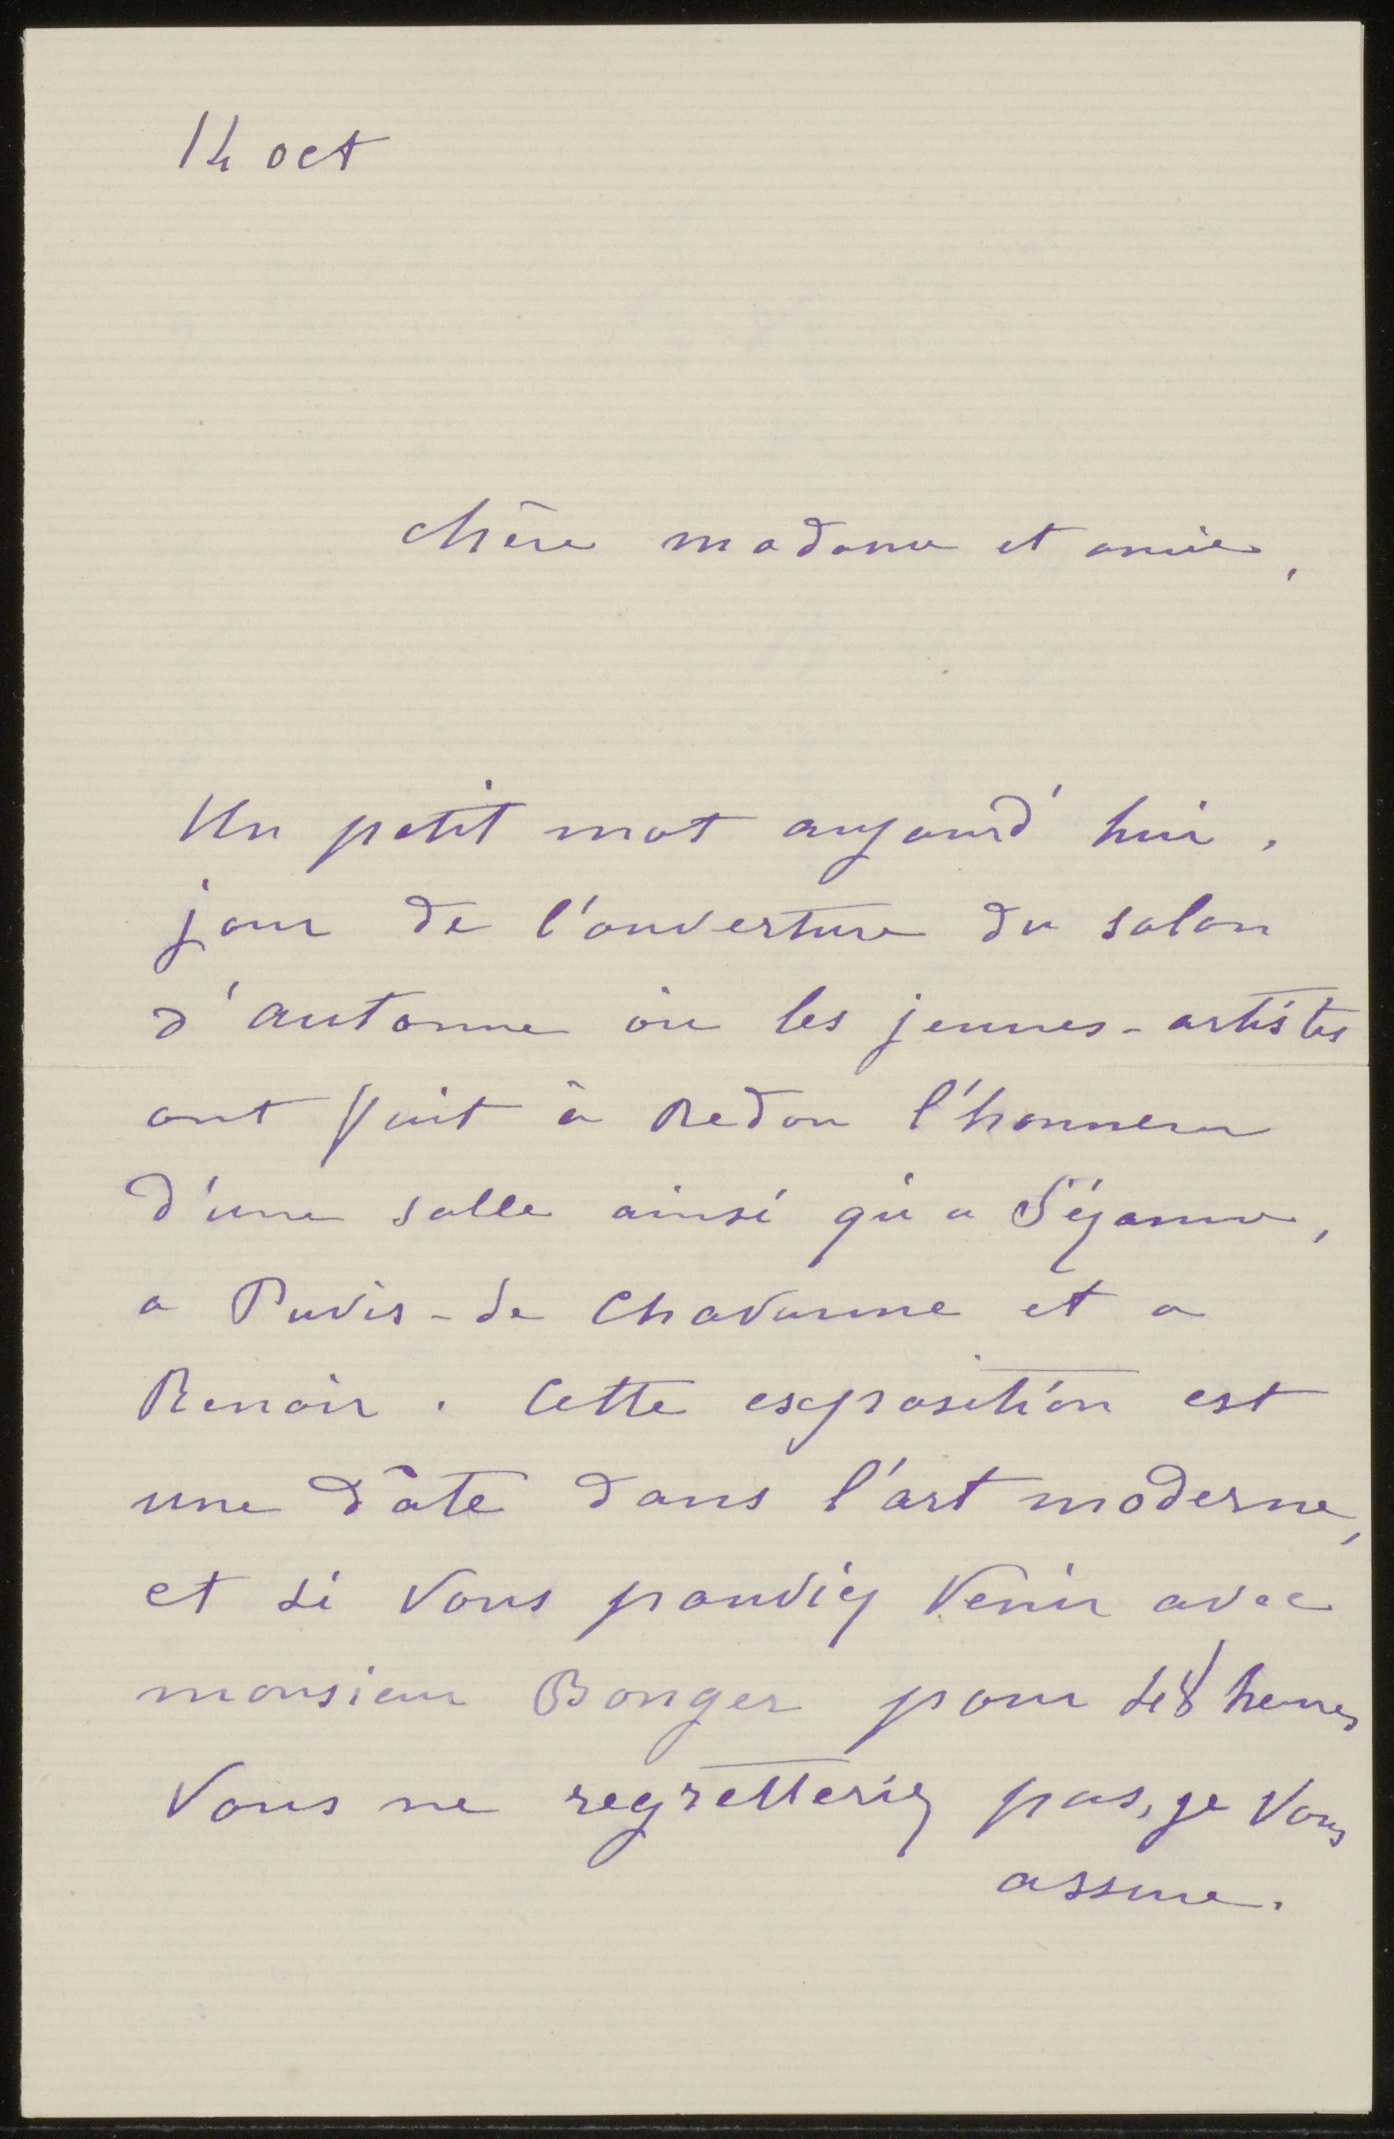 14 oct
chère madame et amie,
Un petit mot aujourd'hui,
jour de l'ouverture du salon
d'automne où les jeunes-artistes
ont fait à Redon l'honneur
d'une salle ainsi qu'a Sézanne,
a Puvis-de Chavanne et a
Renoir. Cette exposition est
une dâte dans l'art moderne,
et si vous pouviez venir avec
monsieur Bonger pour 48 heures
vous ne regretteriez pas, je vous
assure.